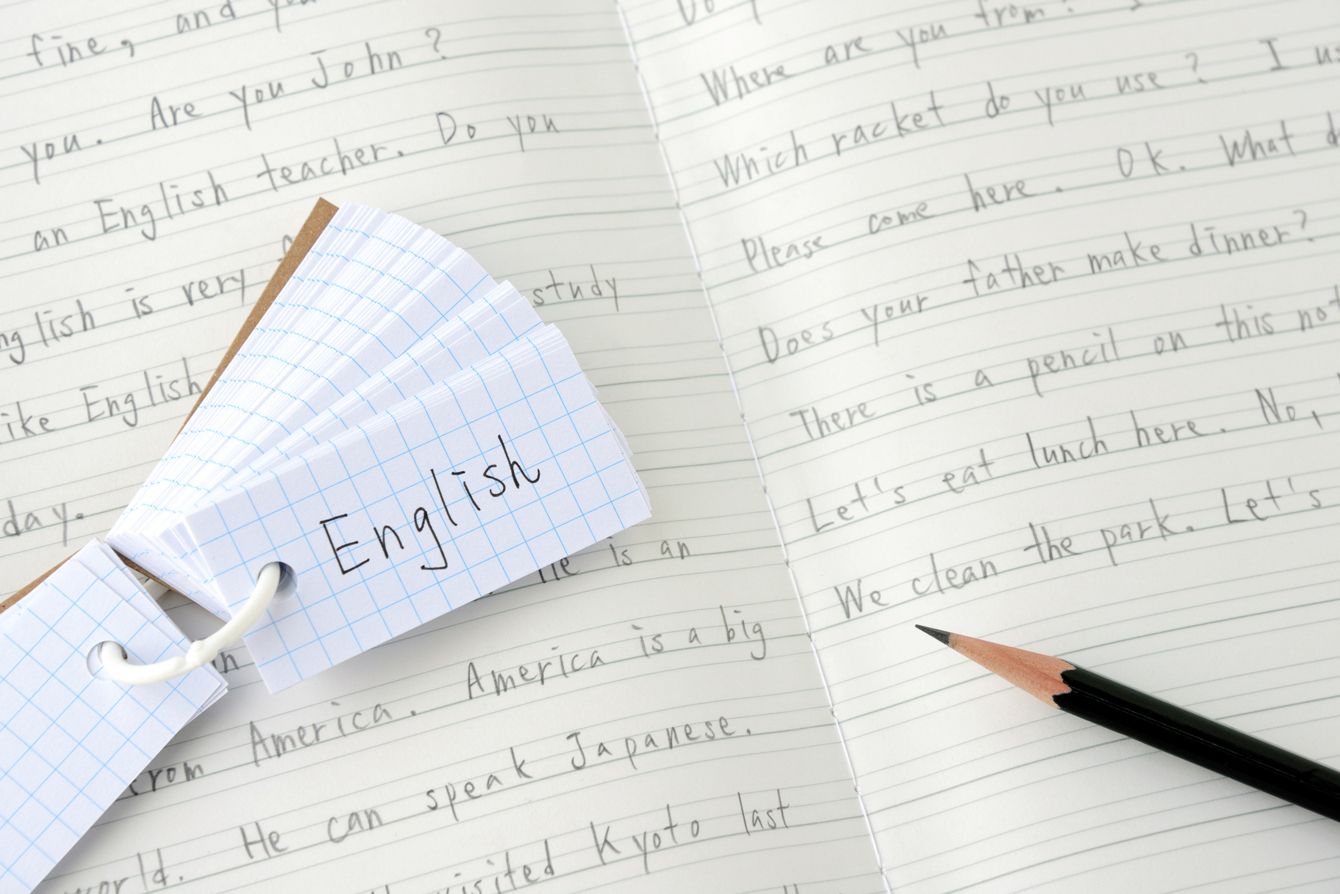 fine, and you
you. Are you John ?
an English teacher. Do you
English is very
study
like English
day.
English
He is an
America is a big
from America.
He can speak Japanese.
world.
visited Kyoto last
Do
Where are you from?
Which racket do you use ? I
Please come here. Ok. What
Does your father make dinner?
There is a pencil on this
Let's eat lunch here. No,
We clean the park. Let's